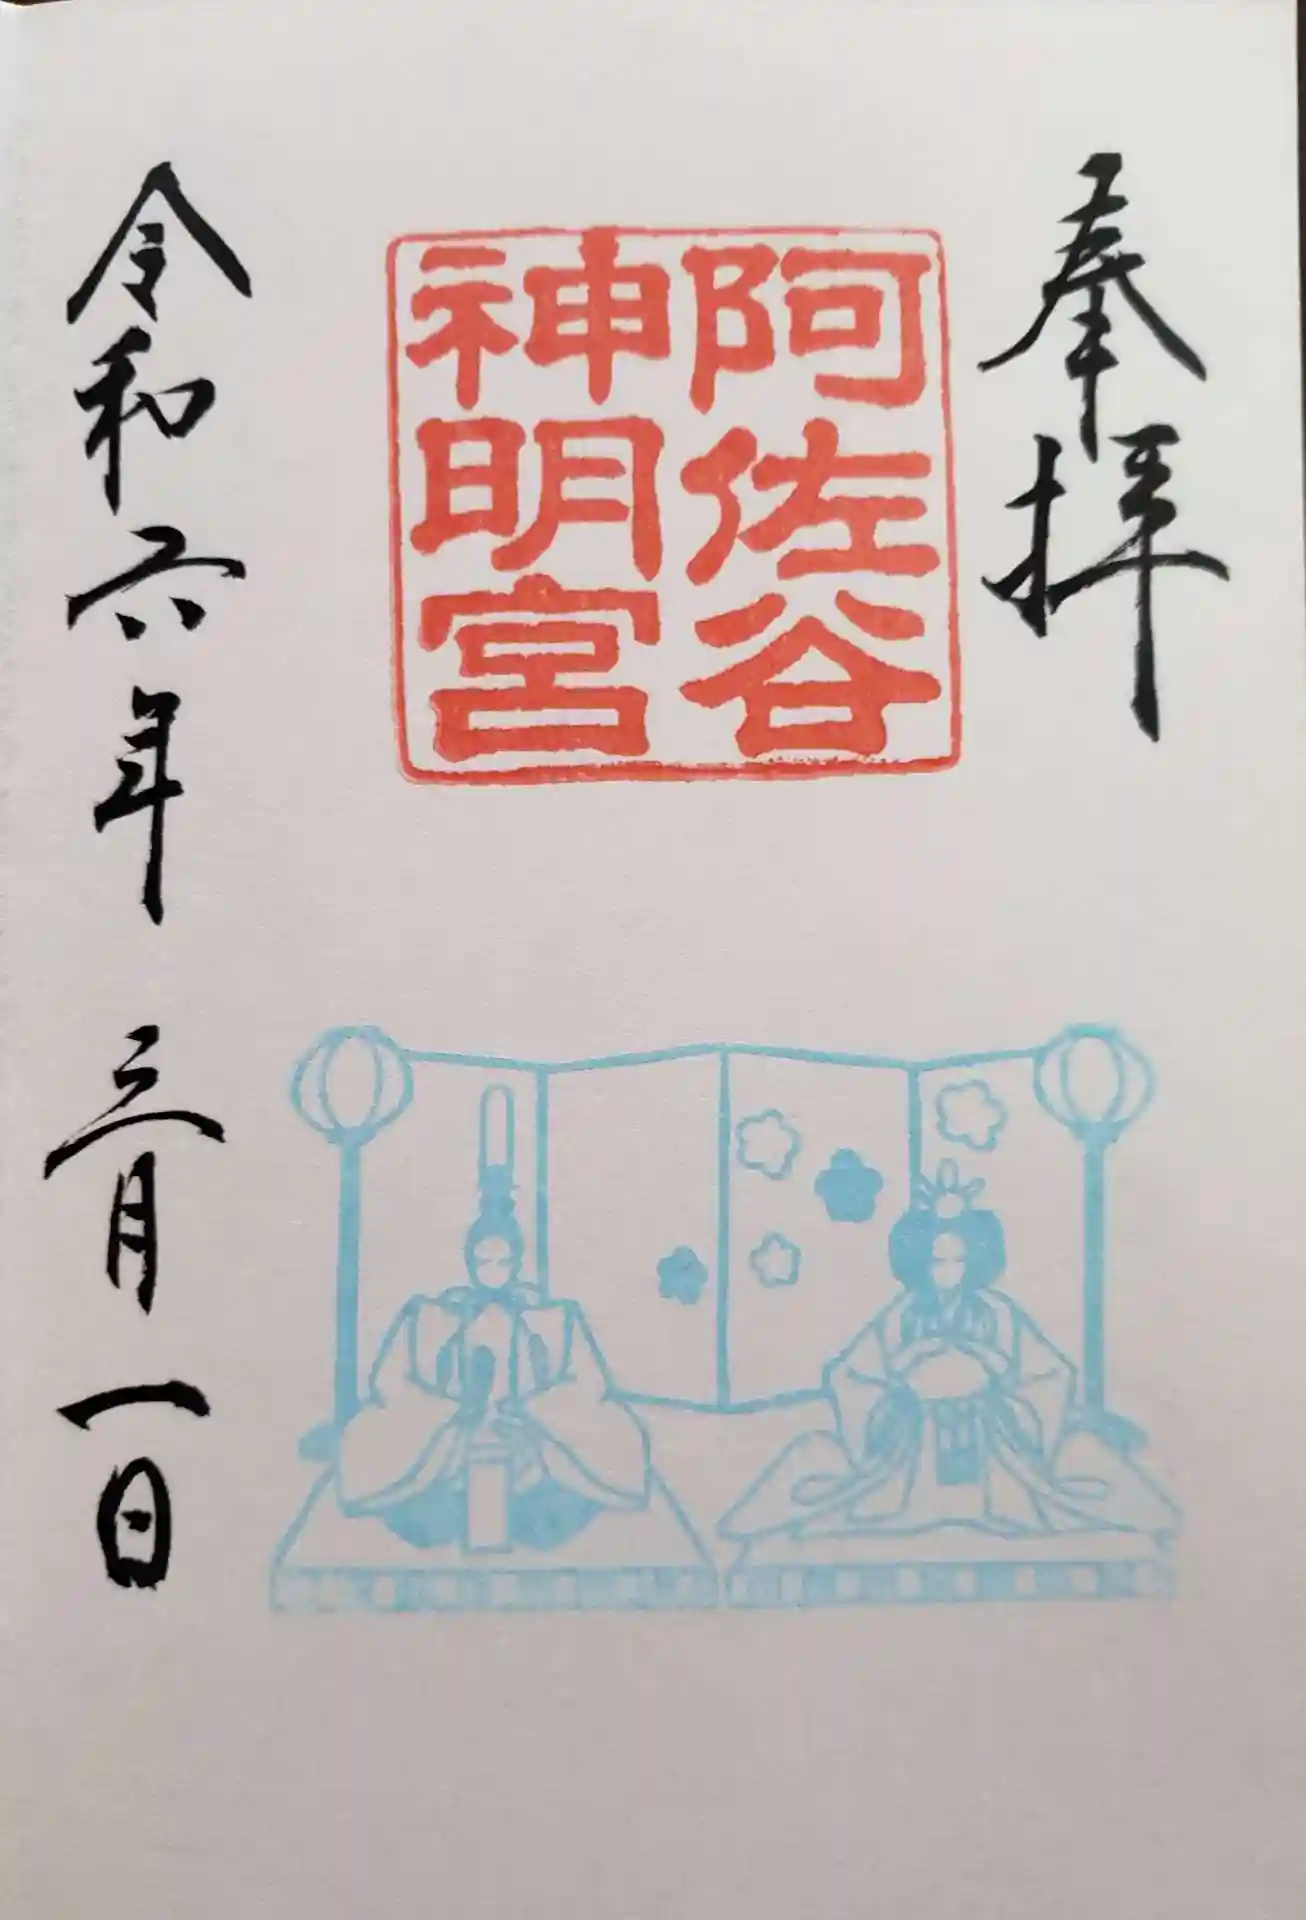 奉拝
阿佐谷
神明宮
令和六年三月一日